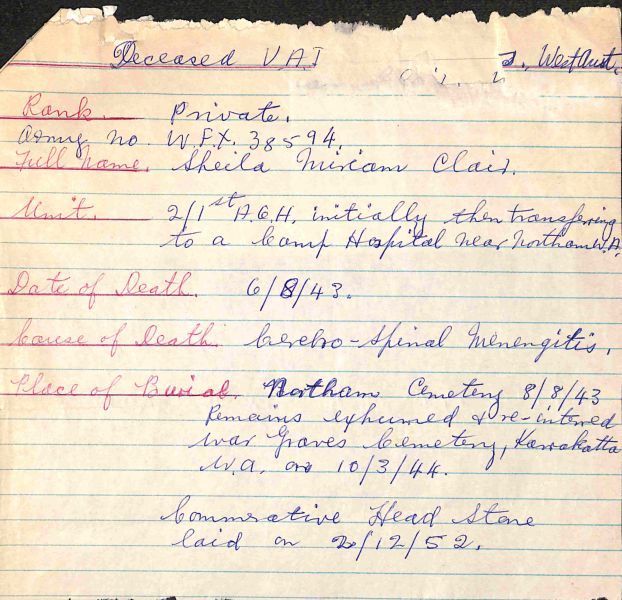 Deceased V.A.D , West Aust.
Rank. Private.
Army no. W.F.X. 38594.
Full Name. Sheila Miriam Clair.
Unit. 2/1st A.G.H. initially then transferring
to a Camp Hospital near Northam W.A.
Date of Death. 6/8/43.
Cause of Death. Cerebro-Spinal Menengitis.
Place of Burial. Northam Cemetery 8/8/43
Remains exhumed & re-interred
War Graves Cemetery, Karrakatta
W.A. on 10/3/44.
Commerative Head Stone
laid on 2/12/52.